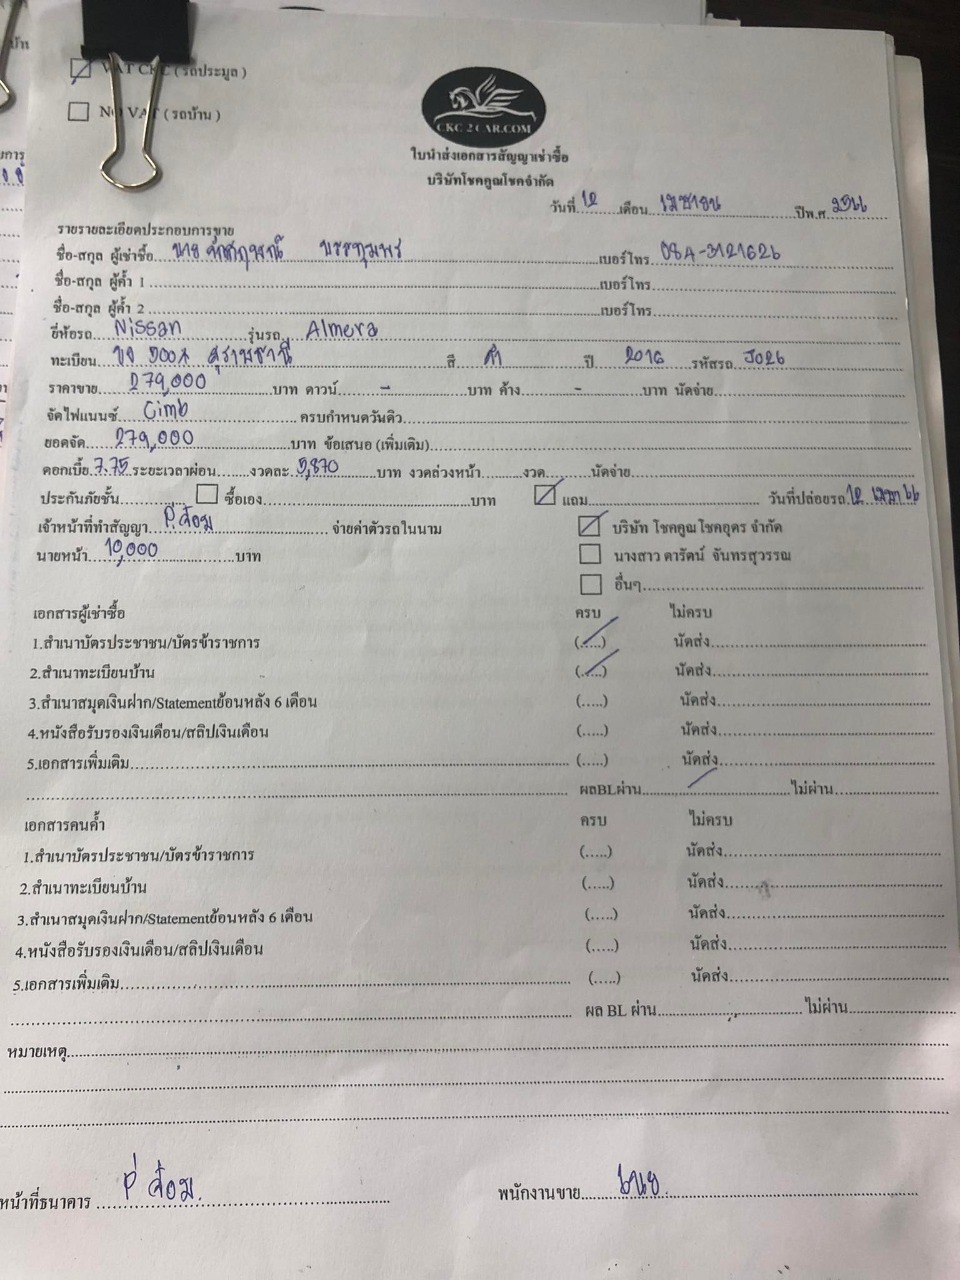 VAT CKC ( รถประมูล )
NO VAT ( รถบ้าน )
CKC 2 CAR.COM
ใบนำส่งเอกสารสัญญาเช่าซื้อ
บริษัทโชคคูณโชคจำกัด
วันที่ 12 เดือน เมษายน ปีพ.ศ 2566
รายรายละเอียดประกอบการขาย
ชื่อ-สกุล ผู้เช่าซื้อ นาย เบอร์โทร 084-3121626
ชื่อ-สกุล ผู้ค้ำ 1 เบอร์โทร
ชื่อ-สกุล ผู้ค้ำ 2 เบอร์โทร
ยี่ห้อรถ Nissan รุ่นรถ Almera
ทะเบียน สี ดำ ปี 2016 รหัสรถ J026
ราคาขาย 279,000 บาท ดาวน์ - บาท ค้าง - บาท นัดจ่าย
จัดไฟแนนซ์ Cimb ครบกำหนดวันดิว
ยอดจัด 279,000 บาท ข้อเสนอ (เพิ่มเติม)
ดอกเบี้ย 7.75 ระยะเวลาผ่อน งวดละ 5,870 บาท งวดล่วงหน้า งวด นัดจ่าย
ประกันภัยชั้น ซื้อเอง บาท แถม วันที่ปล่อยรถ 12 เมษา 66
เจ้าหน้าที่ทำสัญญา P' ส้อม จ่ายค่าตัวรถในนาม บริษัท โชคคูณโชคอุดร จำกัด
นายหน้า 10,000 บาท นางสาว ดารัตน์ จันทรสุวรรณ
อื่นๆ
เอกสารผู้เช่าซื้อ ครบ ไม่ครบ
1.สำเนาบัตรประชาชน/บัตรข้าราชการ (.....) นัดส่ง
2.สำเนาทะเบียนบ้าน (.....) นัดส่ง
3.สำเนาสมุดเงินฝาก/Statementย้อนหลัง 6 เดือน (.....) นัดส่ง
4.หนังสือรับรองเงินเดือน/สลิปเงินเดือน (.....) นัดส่ง
5.เอกสารเพิ่มเติม (.....) นัดส่ง
ผลBLผ่าน ไม่ผ่าน
เอกสารคนค้ำ ครบ ไม่ครบ
1.สำเนาบัตรประชาชน/บัตรข้าราชการ (.....) นัดส่ง
2.สำเนาทะเบียนบ้าน (.....) นัดส่ง
3.สำเนาสมุดเงินฝาก/Statementย้อนหลัง 6 เดือน (.....) นัดส่ง
4.หนังสือรับรองเงินเดือน/สลิปเงินเดือน (.....) นัดส่ง
5.เอกสารเพิ่มเติม (.....) นัดส่ง
ผล BL ผ่าน ไม่ผ่าน
หมายเหตุ
หน้าที่ธนาคาร P' ส้อม. พนักงานขาย